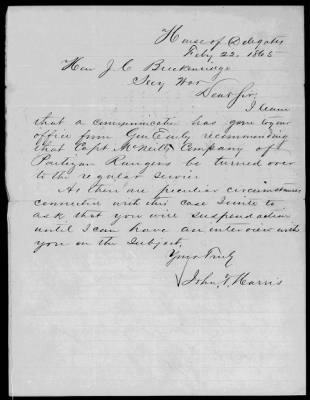 House of Delegates
Feby 22. 1865
Hon J. C Breckenridge
Secy War
Dear Sir,
I learn
that a communication has gone to your
office from Gen Early recommending
that Capt McNeills Company of
Partizan Rangers be turned over
to the regular service
As there are peculiar circumstances
connected with this case I write to
ask that you will suspend action
until I can have an interview with
you on the subject,
Yours Truly
John T. Harris